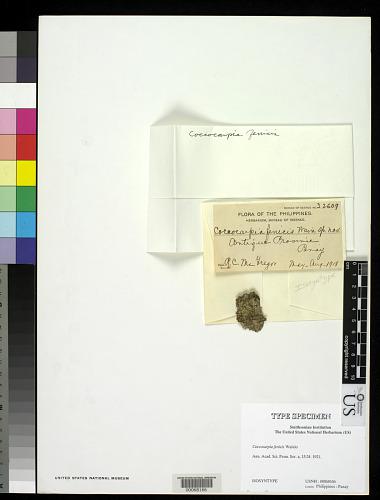 Coccocarpia fenicis
BUREAU OF SCIENCE No. 32609
FLORA OF THE PHILIPPINES.
HERBARIUM, BUREAU OF SCIENCE.
Coccocarpia fenicis Wain. sp. nov.
Antique Province
Panay
R. C. McGregor May-Aug. 1918
Isosyntype
copyright reserved
US
TYPE SPECIMEN
Smithsonian Institution
The United States National Herbarium (US)
Coccocarpia fenicis Wainio
Ann. Acad. Sci. Fenn. Ser. a, 15:24. 1921.
ISOSYNTYPE
Philippines : Panay
UNITED STATES NATIONAL MUSEUM